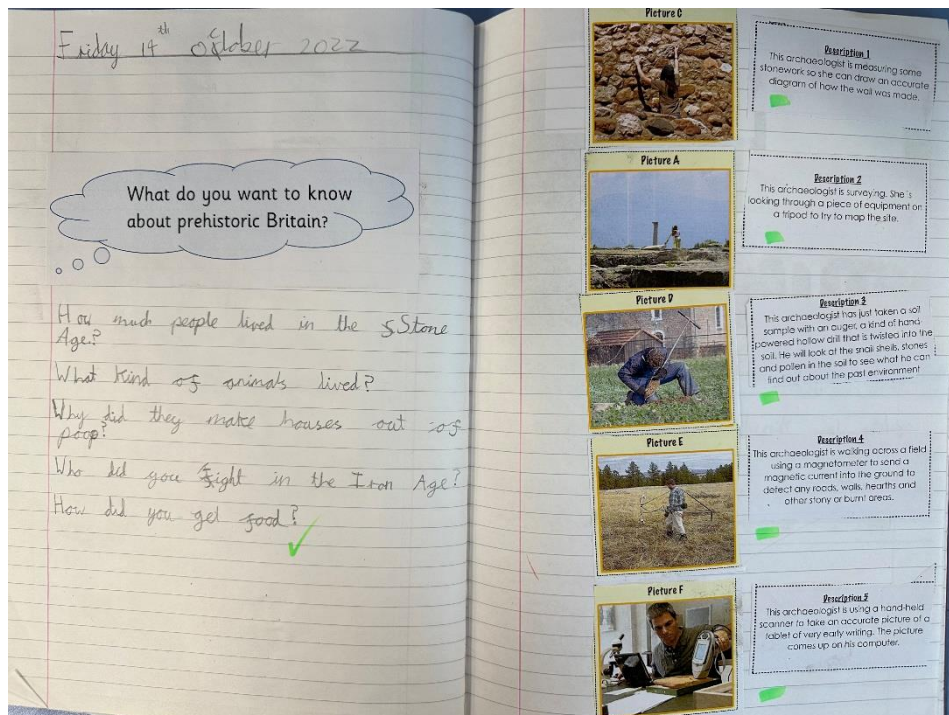 Friday 14th October 2022
What do you want to know
about prehistoric Britain?
How much people lived in the Stone
Age?
What kind of animals lived?
Why did they make houses out of
poop?
Who did you fight in the Iron Age?
How did you get food?
Picture C
Description 1
This archaeologist is measuring some
stonework so she can draw an accurate
diagram of how the wall was made.
Picture A
Description 2
This archaeologist is surveying. She is
looking through a piece of equipment on
a tripod to try to map the site.
Picture D
Description 3
This archaeologist has just taken a soil
sample with an auger, a kind of hand
powered hollow drill that is twisted into the
soil. He will look at the snail shells, stones
and pollen in the soil to see what he can
find out about the past environment
Picture E
Description 4
This archaeologist is walking across a field
using a magnetometer to send a
magnetic current into the ground to
detect any roads, walls, hearths and
other stony or burnt areas.
Picture F
Description 5
This archaeologist is using a hand-held
scanner to take an accurate picture of a
tablet of very early writing. The picture
comes up on his computer.